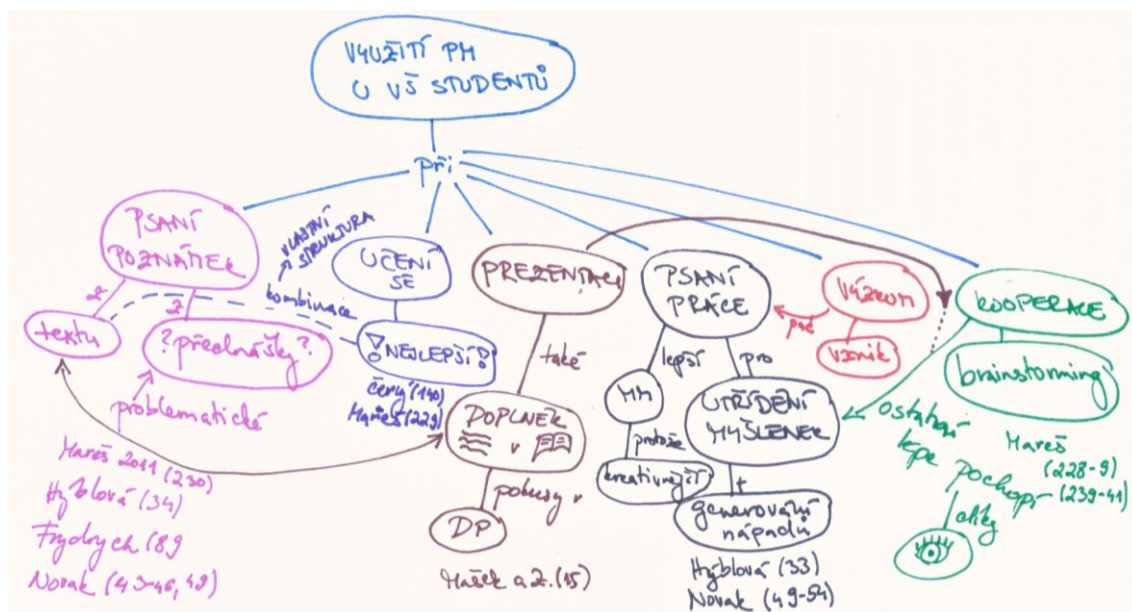 VYUŽITÍ PM
U VŠ STUDENTŮ
při
PSANÍ
POZNÁMEK
z
textu
z
?přednášky?
problematické
Mareš 2011 (230)
Hýblová (34)
Frydrych (89
Novak (43-46, 49)
VLASTNÍ
STRUKTURA
kombinace
UČENÍ
SE
!NEJLEPŠÍ!
Mareš (229)
PREZENTACI
také
DOPLNĚK
v
pokusy v
DP
Mašek a Z. (15)
PSANÍ
PRÁCE
lepší
pro
MM
protože
kreativnější
UTŘÍDĚNÍ
MYŠLENEK
+
generování
nápadů
Hýblová (33)
Novak (49-54)
VÝZKUM
proč
vznik
KOOPERACE
brainstorming
Mareš
(228-9)
(239-41)
ostatní
lépe pochopí
díky